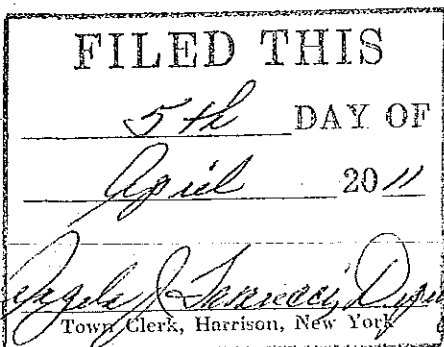 FILED THIS
5th DAY OF
April 2011
Angela
Town Clerk, Harrison, New York